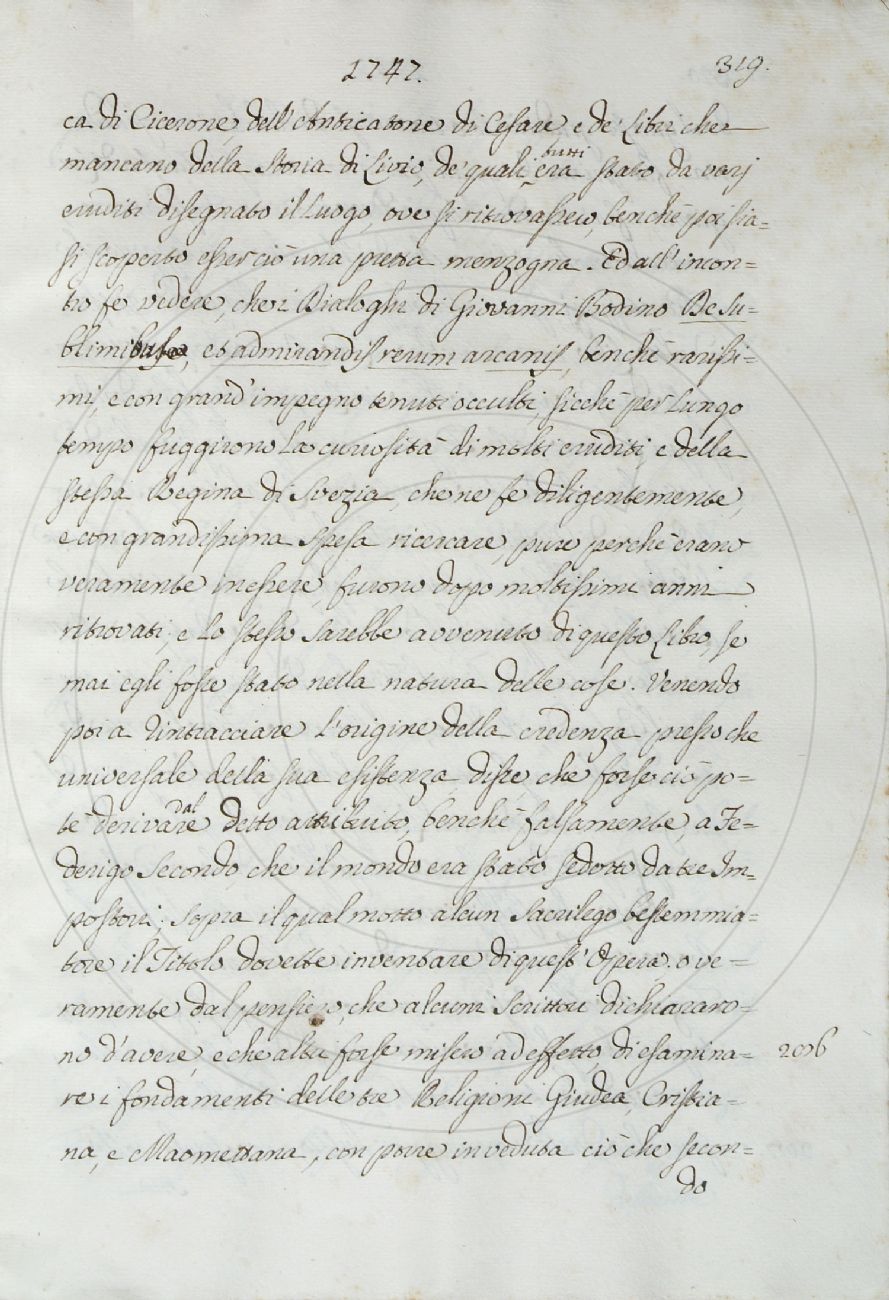 1747.
319.
ca di Cicerone, dell'Anticatone di Cesare e de' Libri che
mancano della Storia di Livio, de' quali tutti era stato da varj
eruditi disegnato il Luogo, ove si ritrovassero, benchè poi sia=
si scoperto esser ciò una pretta menzogna. Ed all' incon=
tro fe vedere, che i Dialoghi di Giovanni Bodino De Su=
blimibus, et admirandis rerum arcanis, benchè rarissi=
mi, e con grand' impegno tenuti occulti, sicchè per lungo
tempo fuggirono la curiosità di molti eruditi, e della
stessa Regina di Svezia, che ne fe diligentemente,
e con grandissima spesa ricercare, pure perchè erano
veramente in essere, furono dopo moltissimi anni
ritrovati; e lo stesso sarebbe avvenuto di questo Libro, se
mai egli fosse stato nella natura delle cose. Venendo
poi a rintracciare l'origine della credenza presso che
universale della sua esistenza, disse, che forse ciò po=
tè derivare dal detto attribuito, benchè falsamente, a Fe=
derigo Secondo, che il mondo era stato sedotto da tre Im=
postori; sopra il qual motto alcun sacrilego bestemmia=
tore il Titolo dovette inventare di quest' Opera. o ve=
ramente dal pensiero, che alcuni Scrittori dichiararo=
no d'avere, e che altri forse misero ad effetto, di esamina=
2016
re i fondamenti delle tre Religioni Giudea, Cristia=
na, e Maomettana, con porre in veduta ciò che secon=
do